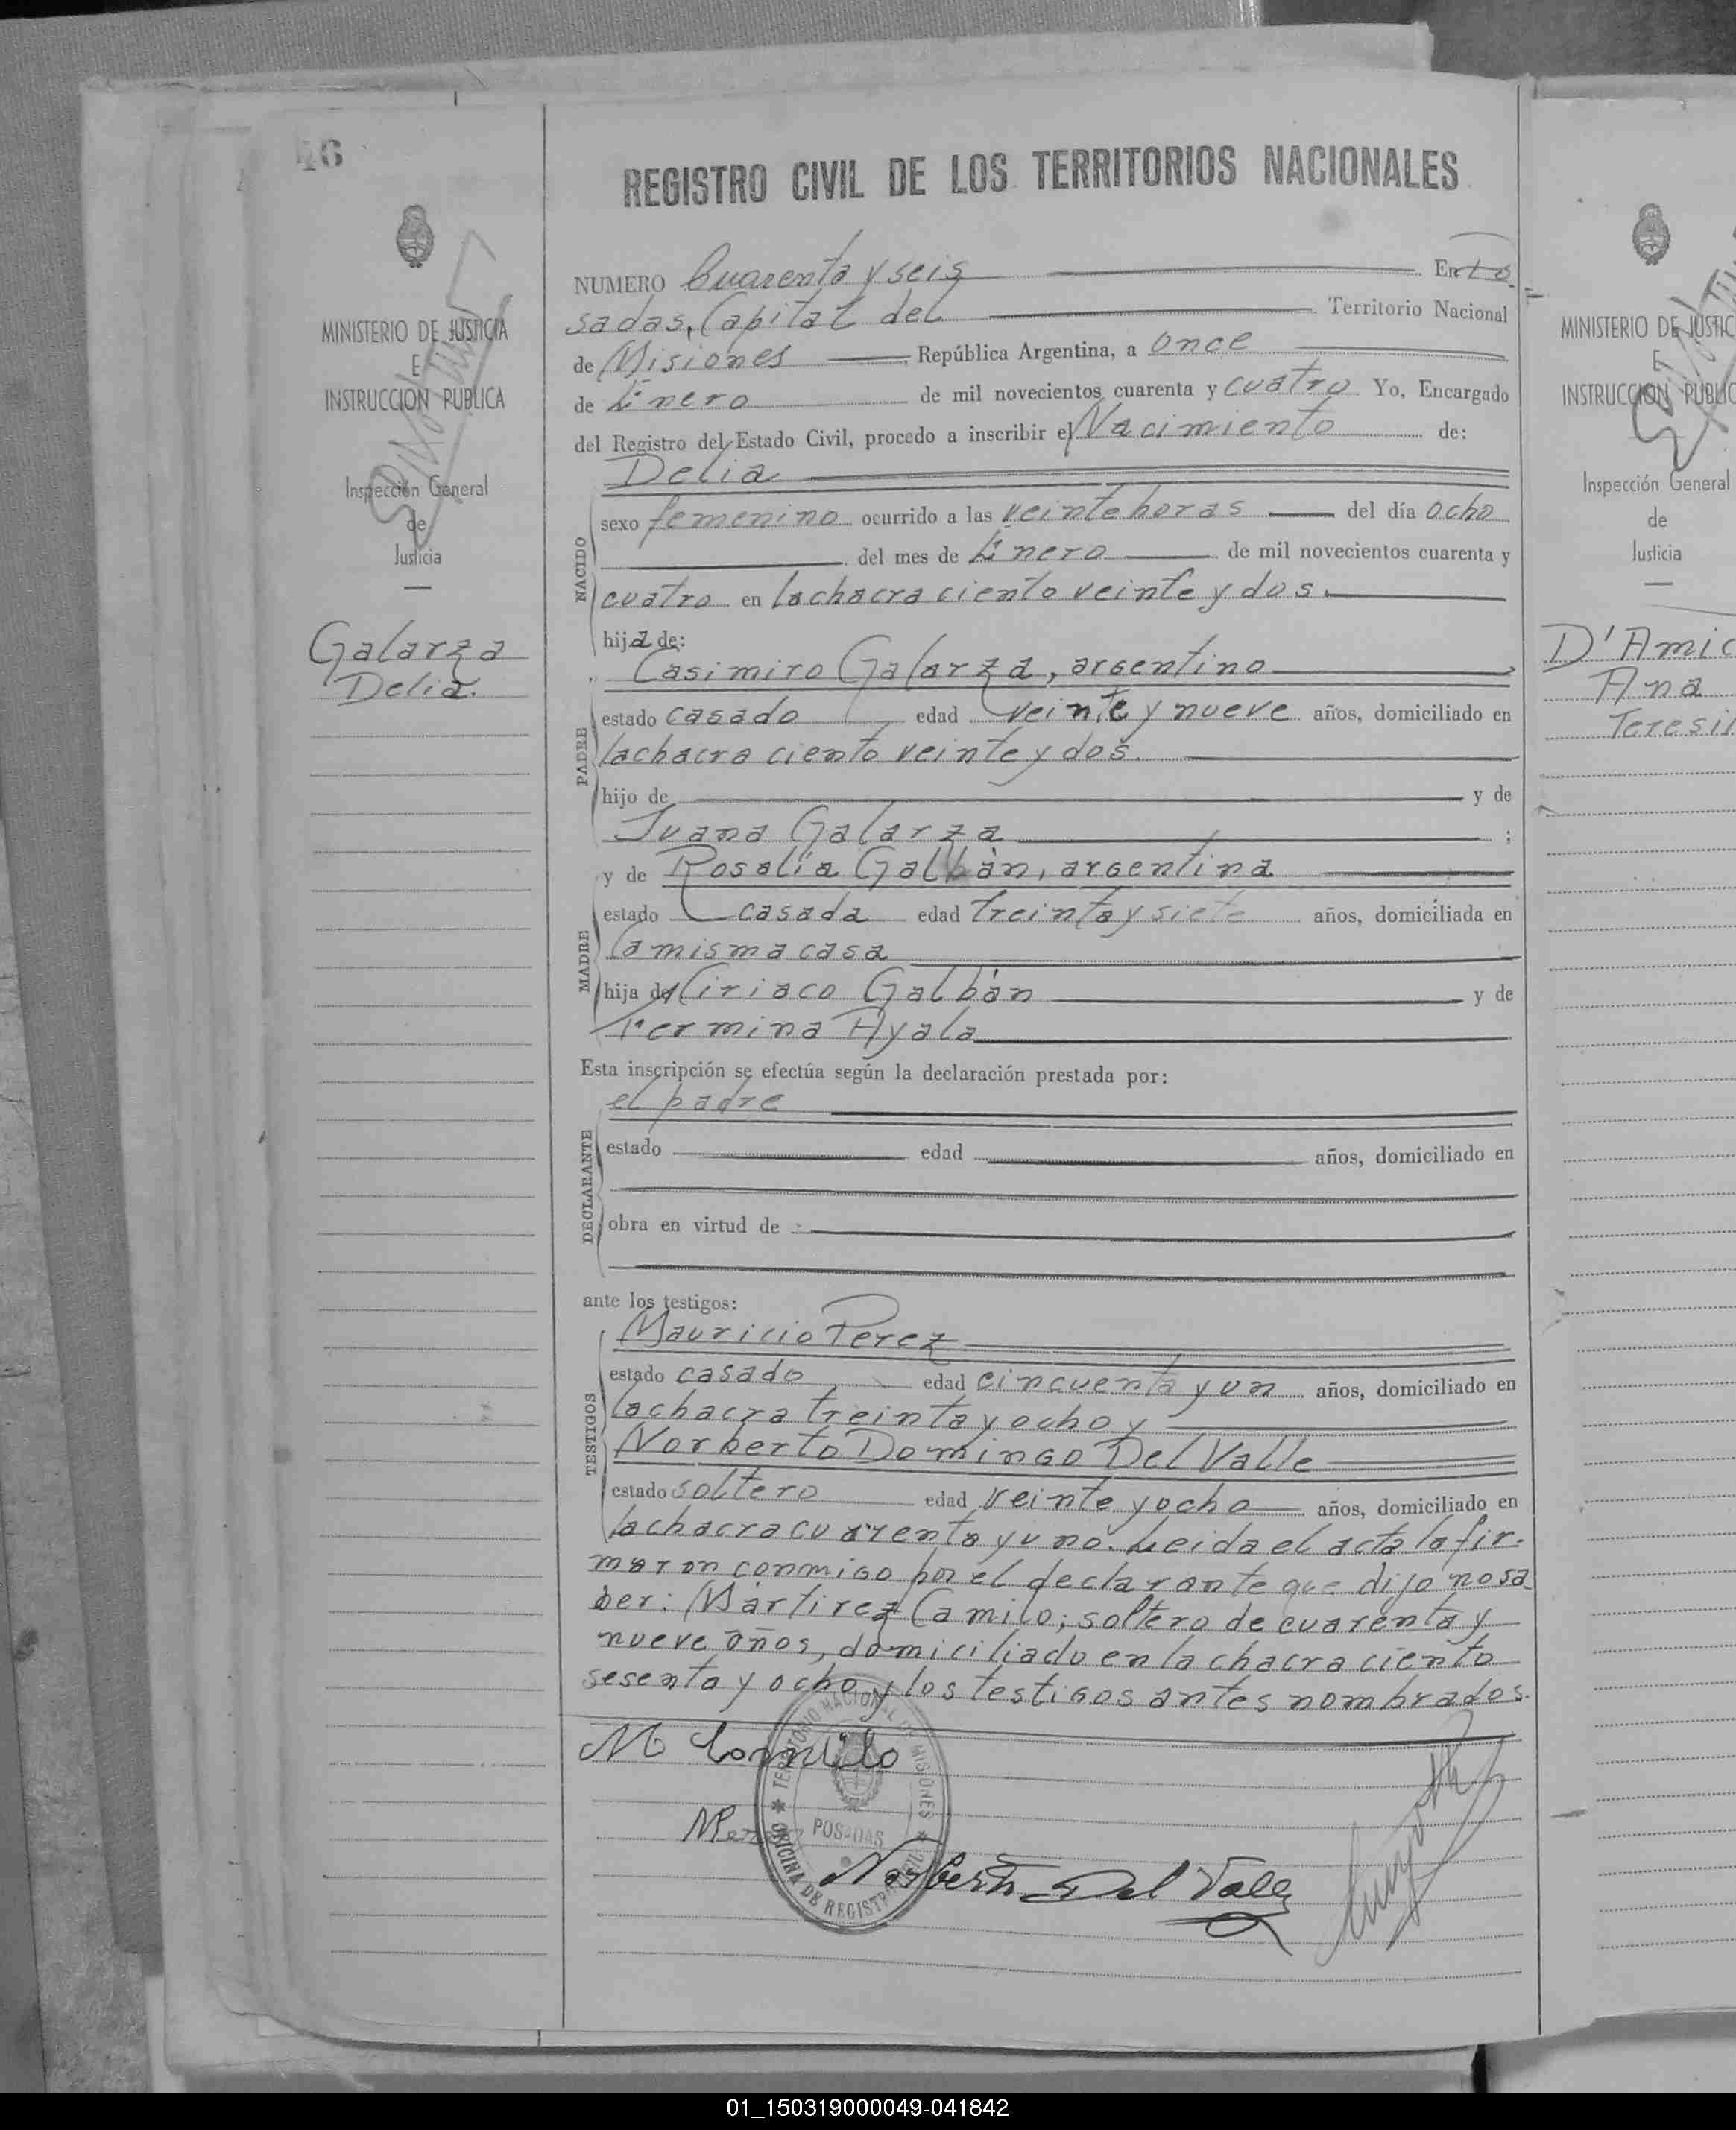 46
REGISTRO CIVIL DE LOS TERRITORIOS NACIONALES
MINISTERIO DE JUSTICIA
E
INSTRUCCION PUBLICA
Inspección General
de
Justicia
Galarza
Delia.
NUMERO Cuarenta y seis En Po
sadas, Capital del Territorio Nacional
de Misiones República Argentina, a Once
de Enero de mil novecientos cuarenta y cuatro Yo, Encargado
del Registro del Estado Civil, procedo a inscribir el Nacimiento de:
Delia
NACIDO
sexo femenino ocurrido a las veinte horas del día ocho
del mes de Enero de mil novecientos cuarenta y
cuatro en la chacra ciento veinte y dos.
hija de:
Casimiro Galarza, argentino
PADRE
estado casado edad veinte y nueve años, domiciliado en
la chacra ciento veinte y dos.
hijo de y de
Juana Galarza ;
y de Rosalía Galbàn, argentina
MADRE
estado casada edad treinta y siete años, domiciliada en
la misma casa
hija de Ciriaco Galbàn y de
Fermina Ayala
Esta inscripción se efectúa según la declaración prestada por:
el padre
DECLARANTE
estado edad años, domiciliado en
obra en virtud de
ante los testigos:
Mauricio Perez
TESTIGOS
estado casado edad cincuenta y un años, domiciliado en
la chacra treinta y ocho y
Norberto Domingo Del Valle
estado soltero edad veinte y ocho años, domiciliado en
la chacra cuarenta y uno. Leida el acta la fir-
maron conmigo por el declarante que dijo no sa
ber: Màrtirez Camilo; soltero de cuarenta y
nueve años, domiciliado en la chacra ciento
sesenta y ocho y los testigos antes nombrados.
M Camilo
TERRITORIO NACIONAL DE MISIONES
POSADAS
OFICINA DE REGISTRO CIVIL
Norberto Del Valle
MINISTERIO DE JUSTIC
E
INSTRUCCION PUBLIC
Inspección General
de
Justicia
D'Amic
Ana
Teresi
01_150319000049-041842